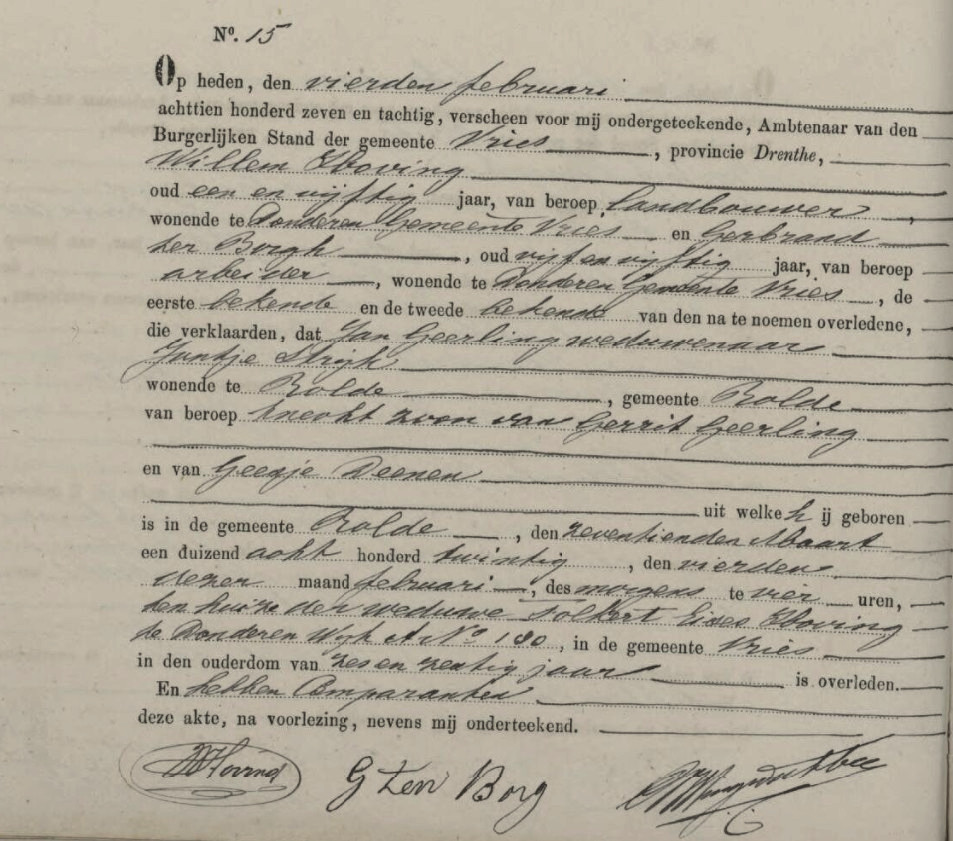 No. 15
Op heden, den vierden februari
achttien honderd zeven en tachtig, verscheen voor mij ondergeteekende, Ambtenaar van den
Burgerlijken Stand der gemeente Vries, provincie Drenthe,
Willem Hoving
oud een en vijftig jaar, van beroep landbouwer,
wonende te Donderen Gemeente Vries en Gerbrand
ter Borgh, oud vijf en vijftig jaar, van beroep
arbeider, wonende te Donderen Gemeente Vries, de
eerste bekende en de tweede bekende van den na te noemen overledene,
die verklaarden, dat Jan Geerling weduwenaar
Jantje Strijk
wonende te Rolde, gemeente Rolde
van beroep knecht zoon van Gerrit Geerling
en van Geesje Deenen
uit welke h ij geboren
is in de gemeente Rolde, den zeventienden Maart
een duizend acht honderd twintig, den vierden
dezer maand februari, des morgens te vier uren,
ten huize der weduwe Folkert Hoving
te Donderen Wijk A No 180, in de gemeente Vries
in den ouderdom van zes en zestig jaar is overleden.
En hebben Comparanten
deze akte, na voorlezing, nevens mij onderteekend.
W Hoving G Ten Borg